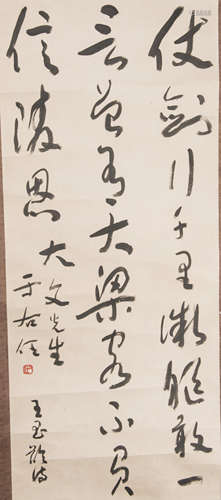 仗劍行千里微軀敢一
言曾為大梁客不負
信陵恩 大文先生
于右任
王昌齡詩